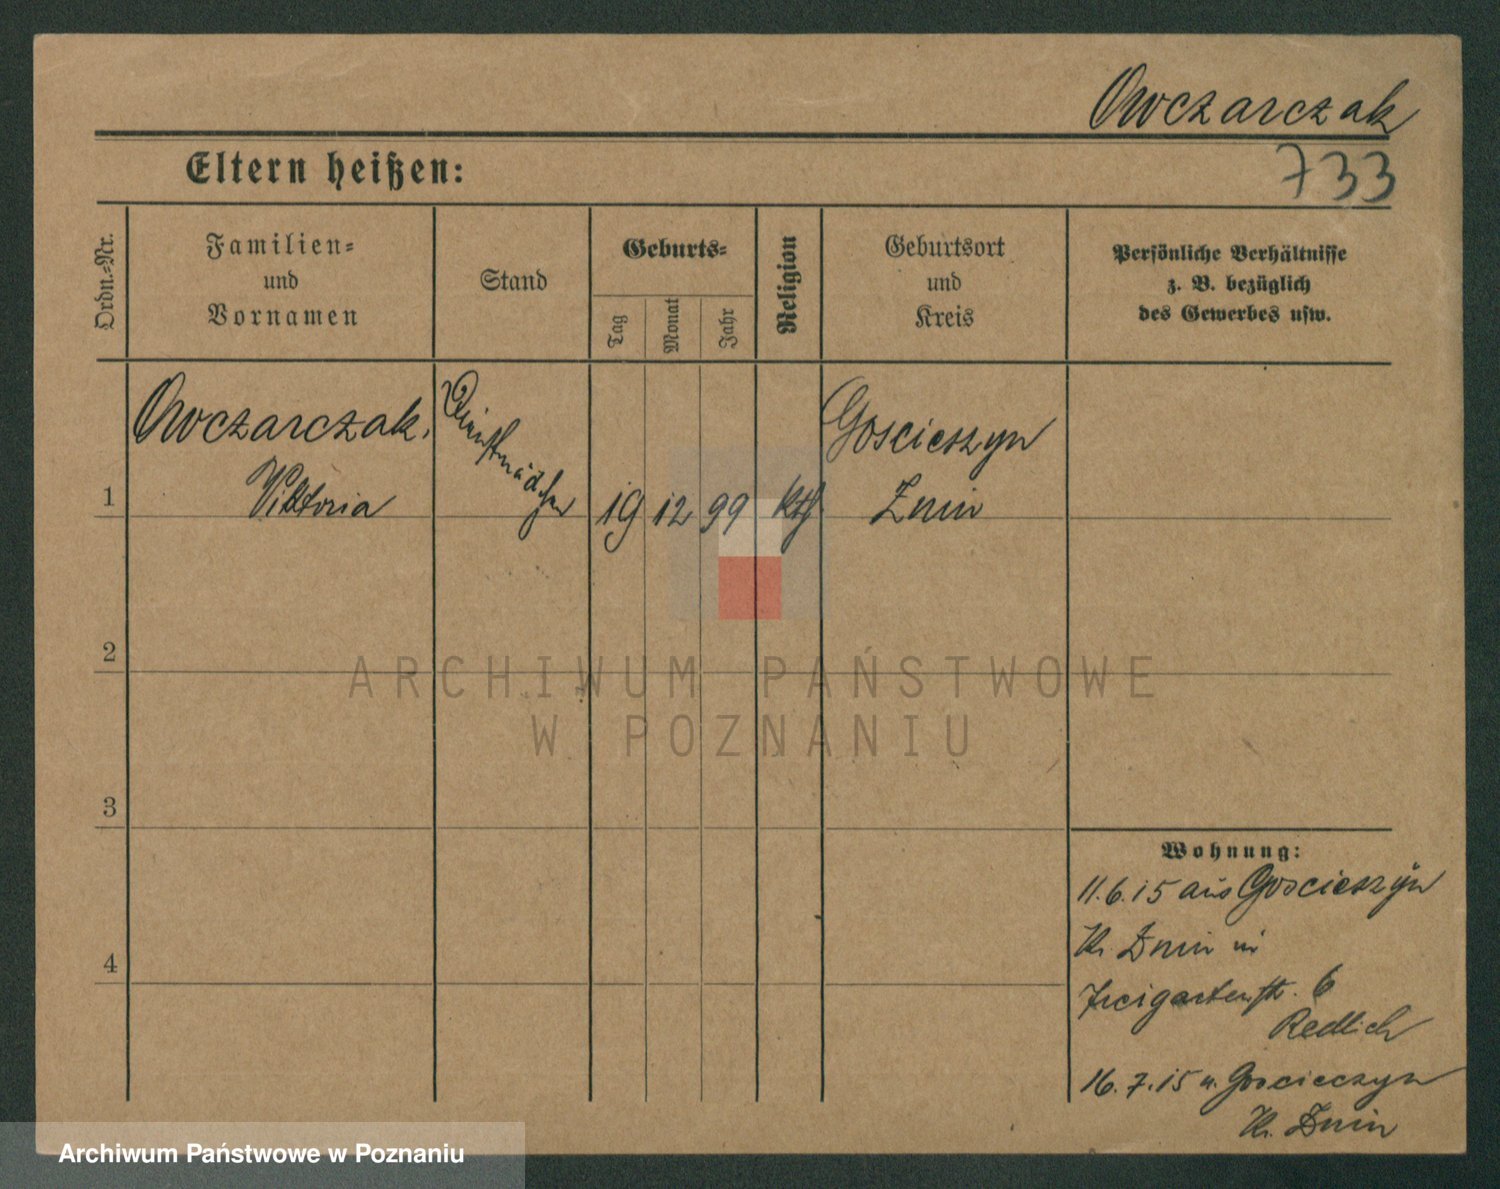 Owczarczak
733
Eltern heißen:
Ordn.=Nr.
Familien=
und
Vornamen
Stand
Geburts=
Tag
Monat
Jahr
Religion
Geburtsort
und
Kreis
Persönliche Verhältnisse
z. B. bezüglich
des Gewerbes usw.
Owczarczak,
Viktoria
Dienstmädchen
1
19
12
99
kth
Goscieszyn
Znin
2
ARCHIWUM PAŃSTWOWE
W POZNANIU
3
Wohnung:
11.6.15 aus Goscieszyn
Kr. Znin in
4
Freigartenstr. 6
Redlich
16.7.15 n. Goscieczyn
Kr. Znin
Archiwum Państwowe w Poznaniu